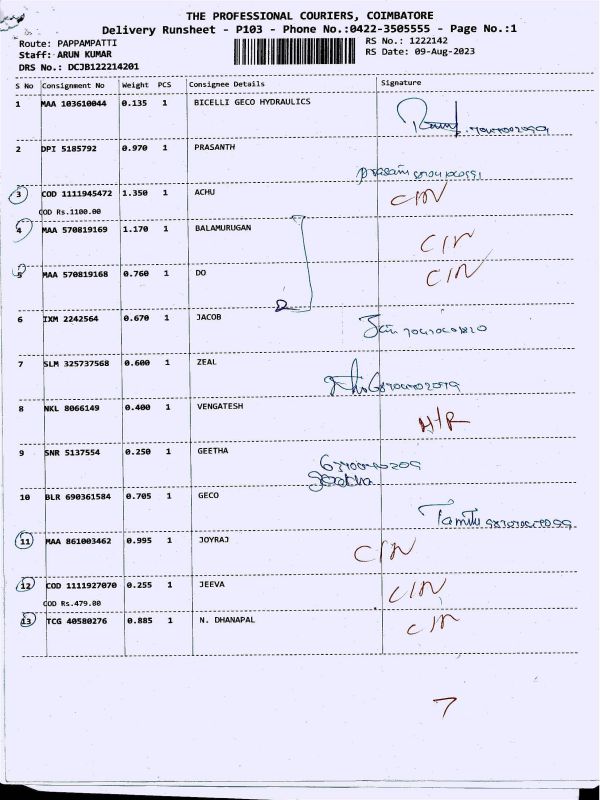 THE PROFESSIONAL COURIERS, COIMBATORE
Delivery Runsheet - P103 - Phone No.:0422-3505555 - Page No.:1
Route: PAPPAMPATTI RS No.: 1222142
Staff: ARUN KUMAR RS Date: 09-Aug-2023
DRS No.: DCJB122214201
S No Consignment No Weight PCS Consignee Details Signature
1 MAA 103610044 0.135 1 BICELLI GECO HYDRAULICS
2 DPI 5185792 0.970 1 PRASANTH
3 COD 1111945472 1.350 1 ACHU C/N
COD Rs.1100.00
4 MAA 570819169 1.170 1 BALAMURUGAN C/N
5 MAA 570819168 0.760 1 DO C/N
6 IXM 2242564 0.670 1 JACOB
7 SLM 325737568 0.600 1 ZEAL
8 NKL 8066149 0.400 1 VENGATESH
9 SNR 5137554 0.250 1 GEETHA
10 BLR 690361584 0.705 1 GECO
11 MAA 861003462 0.995 1 JOYRAJ C/N
12 COD 1111927070 0.255 1 JEEVA C/N
COD Rs.479.00
13 TCG 40580276 0.885 1 N. DHANAPAL C/N
7